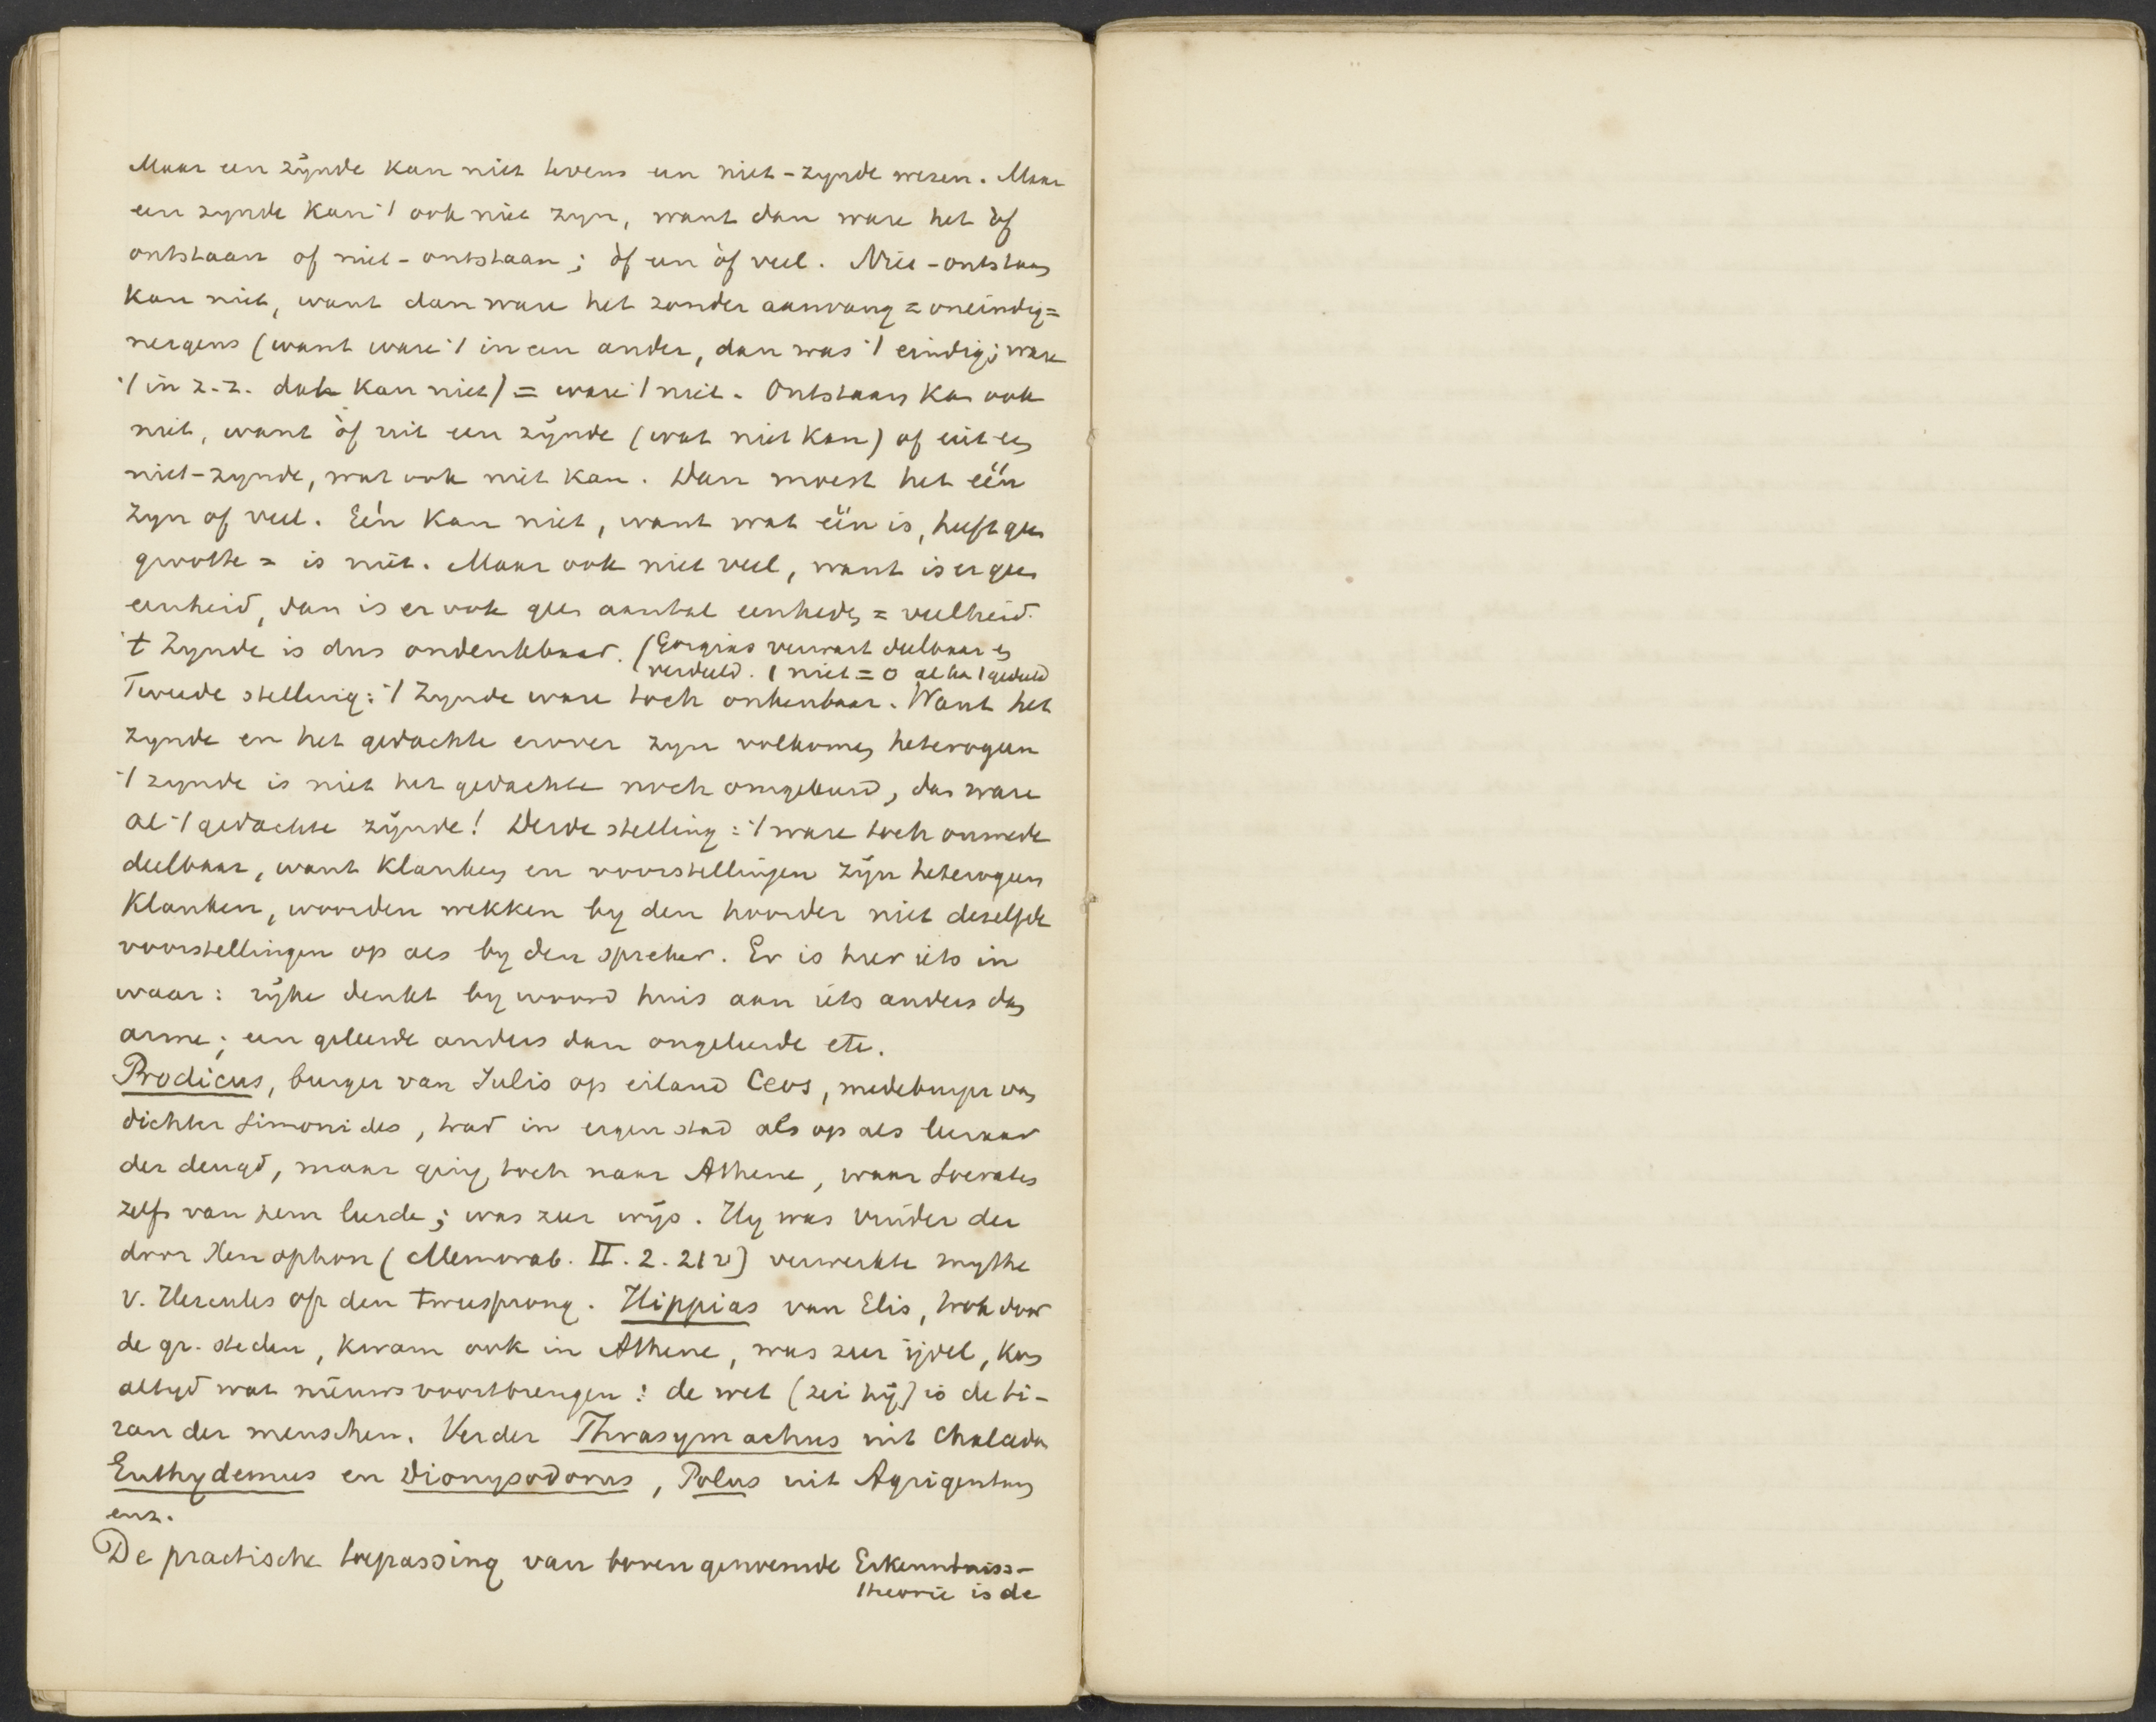 Maar een zijnde kan niet tevens een niet-zynde wezen. Maar
een zynde kan 't ook niet zyn, want dan ware het òf
ontstaan of niet-ontstaan; òf een òf veel. Niet-ontstaan
kan niet, want dan ware het zonder aanvang = oneindig =
nergens (want ware 't in een ander, dan was 't eindig; ware
't in z.z. dat kan niet) = ware 't niet. Ontstaan kan ook
niet, want òf uit een zijnde (wat niet kan) of uit een
niet-zynde, wat ook niet kan. Dan moest het één
zyn of veel. Eén kan niet, want wat één is, heeft geen
grootte = is niet. Maar ook niet veel, want is er geen
eenheid, dan is er ook geen aantal eenheden = veelheid.
't Zynde is dus ondenkbaar. (Gorgias verwart deelbaar en
verdeeld. 1 niet = 0 al ka 1 gedeeld
Tweede stelling: 't Zynde ware toch onkenbaar. Want het
zynde en het gedachte erover zyn volkomen heterogeen
't zynde is niet het gedachte noch omgekeerd, dan ware
al 't gedachte zijnde! Derde stelling: 't ware toch onmede
deelbaar, want klanken en voorstellingen zijn heterogeen
Klanken, woorden wekken by den hoorder niet dezelfde
voorstellingen op als by den spreker. Er is hier iets in
waar: rijke denkt by woord huis aan iets anders dan
arme; een geleerde anders dan ongeleerde etc.
Prodicus, burger van Julis op eiland Ceos, medeburger van
dichter Simonides, trad in eigen stad als op als leeraar
der deugd, maar ging toch naar Athene, waar Socrates
zelfs van hem leerde; was zeer wijs. Hy was vinder der
door Xenophon (Memorab. II. 2. 21 v) verwerkte mythe
v. Hercules op den tweesprong. Hippias van Elis, trok door
de gr. steden, kwam ook in Athene, was zeer ijdel, kon
altyd wat nieuws voortbrengen: de wet (zei hij) is de ti-
ran der menschen. Verder Thrasymachus uit Chalcedon
Euthydemus en Dionysodorus, Polus uit Agrigentum
enz.
De practische toepassing van bovengenoemde Erkenntniss-
theorie is de